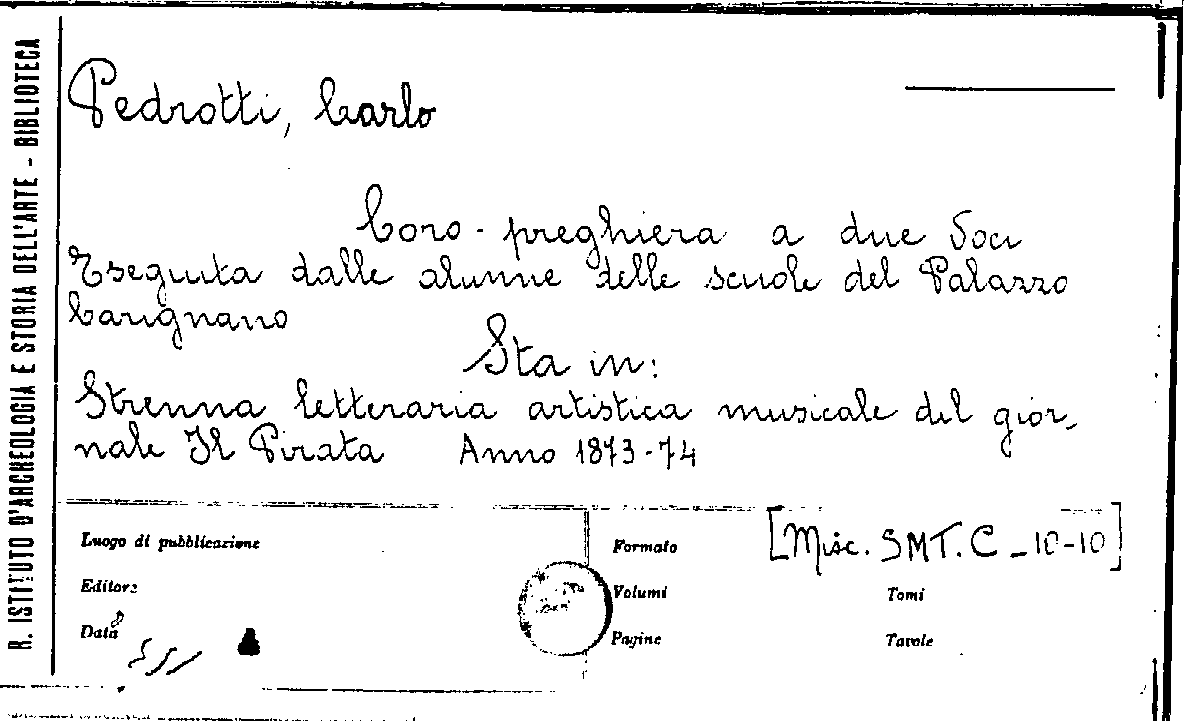 R. ISTITUTO D'ARCHEOLOGIA E STORIA DELL'ARTE - BIBLIOTECA
Pedrotti, Carlo
Coro - preghiera a due Voci
Eseguita dalle alunne delle scuole del Palazzo
Carignano
Sta in:
Strenna letteraria artistica musicale del gior-
nale Il Pirata Anno 1873-74
Luogo di pubblicazione
Editore
Data
Formato
Volumi
Pagine
[Misc. SMT. C - 10-10]
Tomi
Tavole